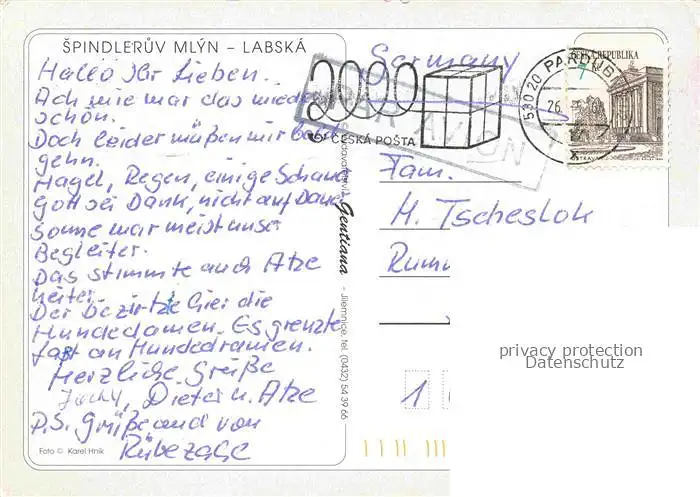 ŠPINDLERŮV MLÝN – LABSKÁ
Hallo Ihr Lieben.
Ach wie war das wieder
schön.
Doch leider müßen wir bald
gehn.
Hagel, Regen, einige Schauer
Gott sei Dank, nicht auf Dauer
Sonne war meist unser
Begleiter.
Das stimmte auch Atze
heiter.
Der bezirtze hier die
Hundedamen. Es grenzte
fast an Hundedramen.
Herzliche Grüße
Dieter u. Atze
P.S. Grüße auch von
Rübezahl
Foto © Karel Hník
Gentiana
– Jilemnice, tel. (0432) 54 39 66
Germany
2000
ČESKÁ POŠTA
PAR AVION
530 20 PARDUBICE
26.
ČESKÁ REPUBLIKA
7 Kč
Fam.
H. Tscheslok
Rumm
1
privacy protection
Datenschutz